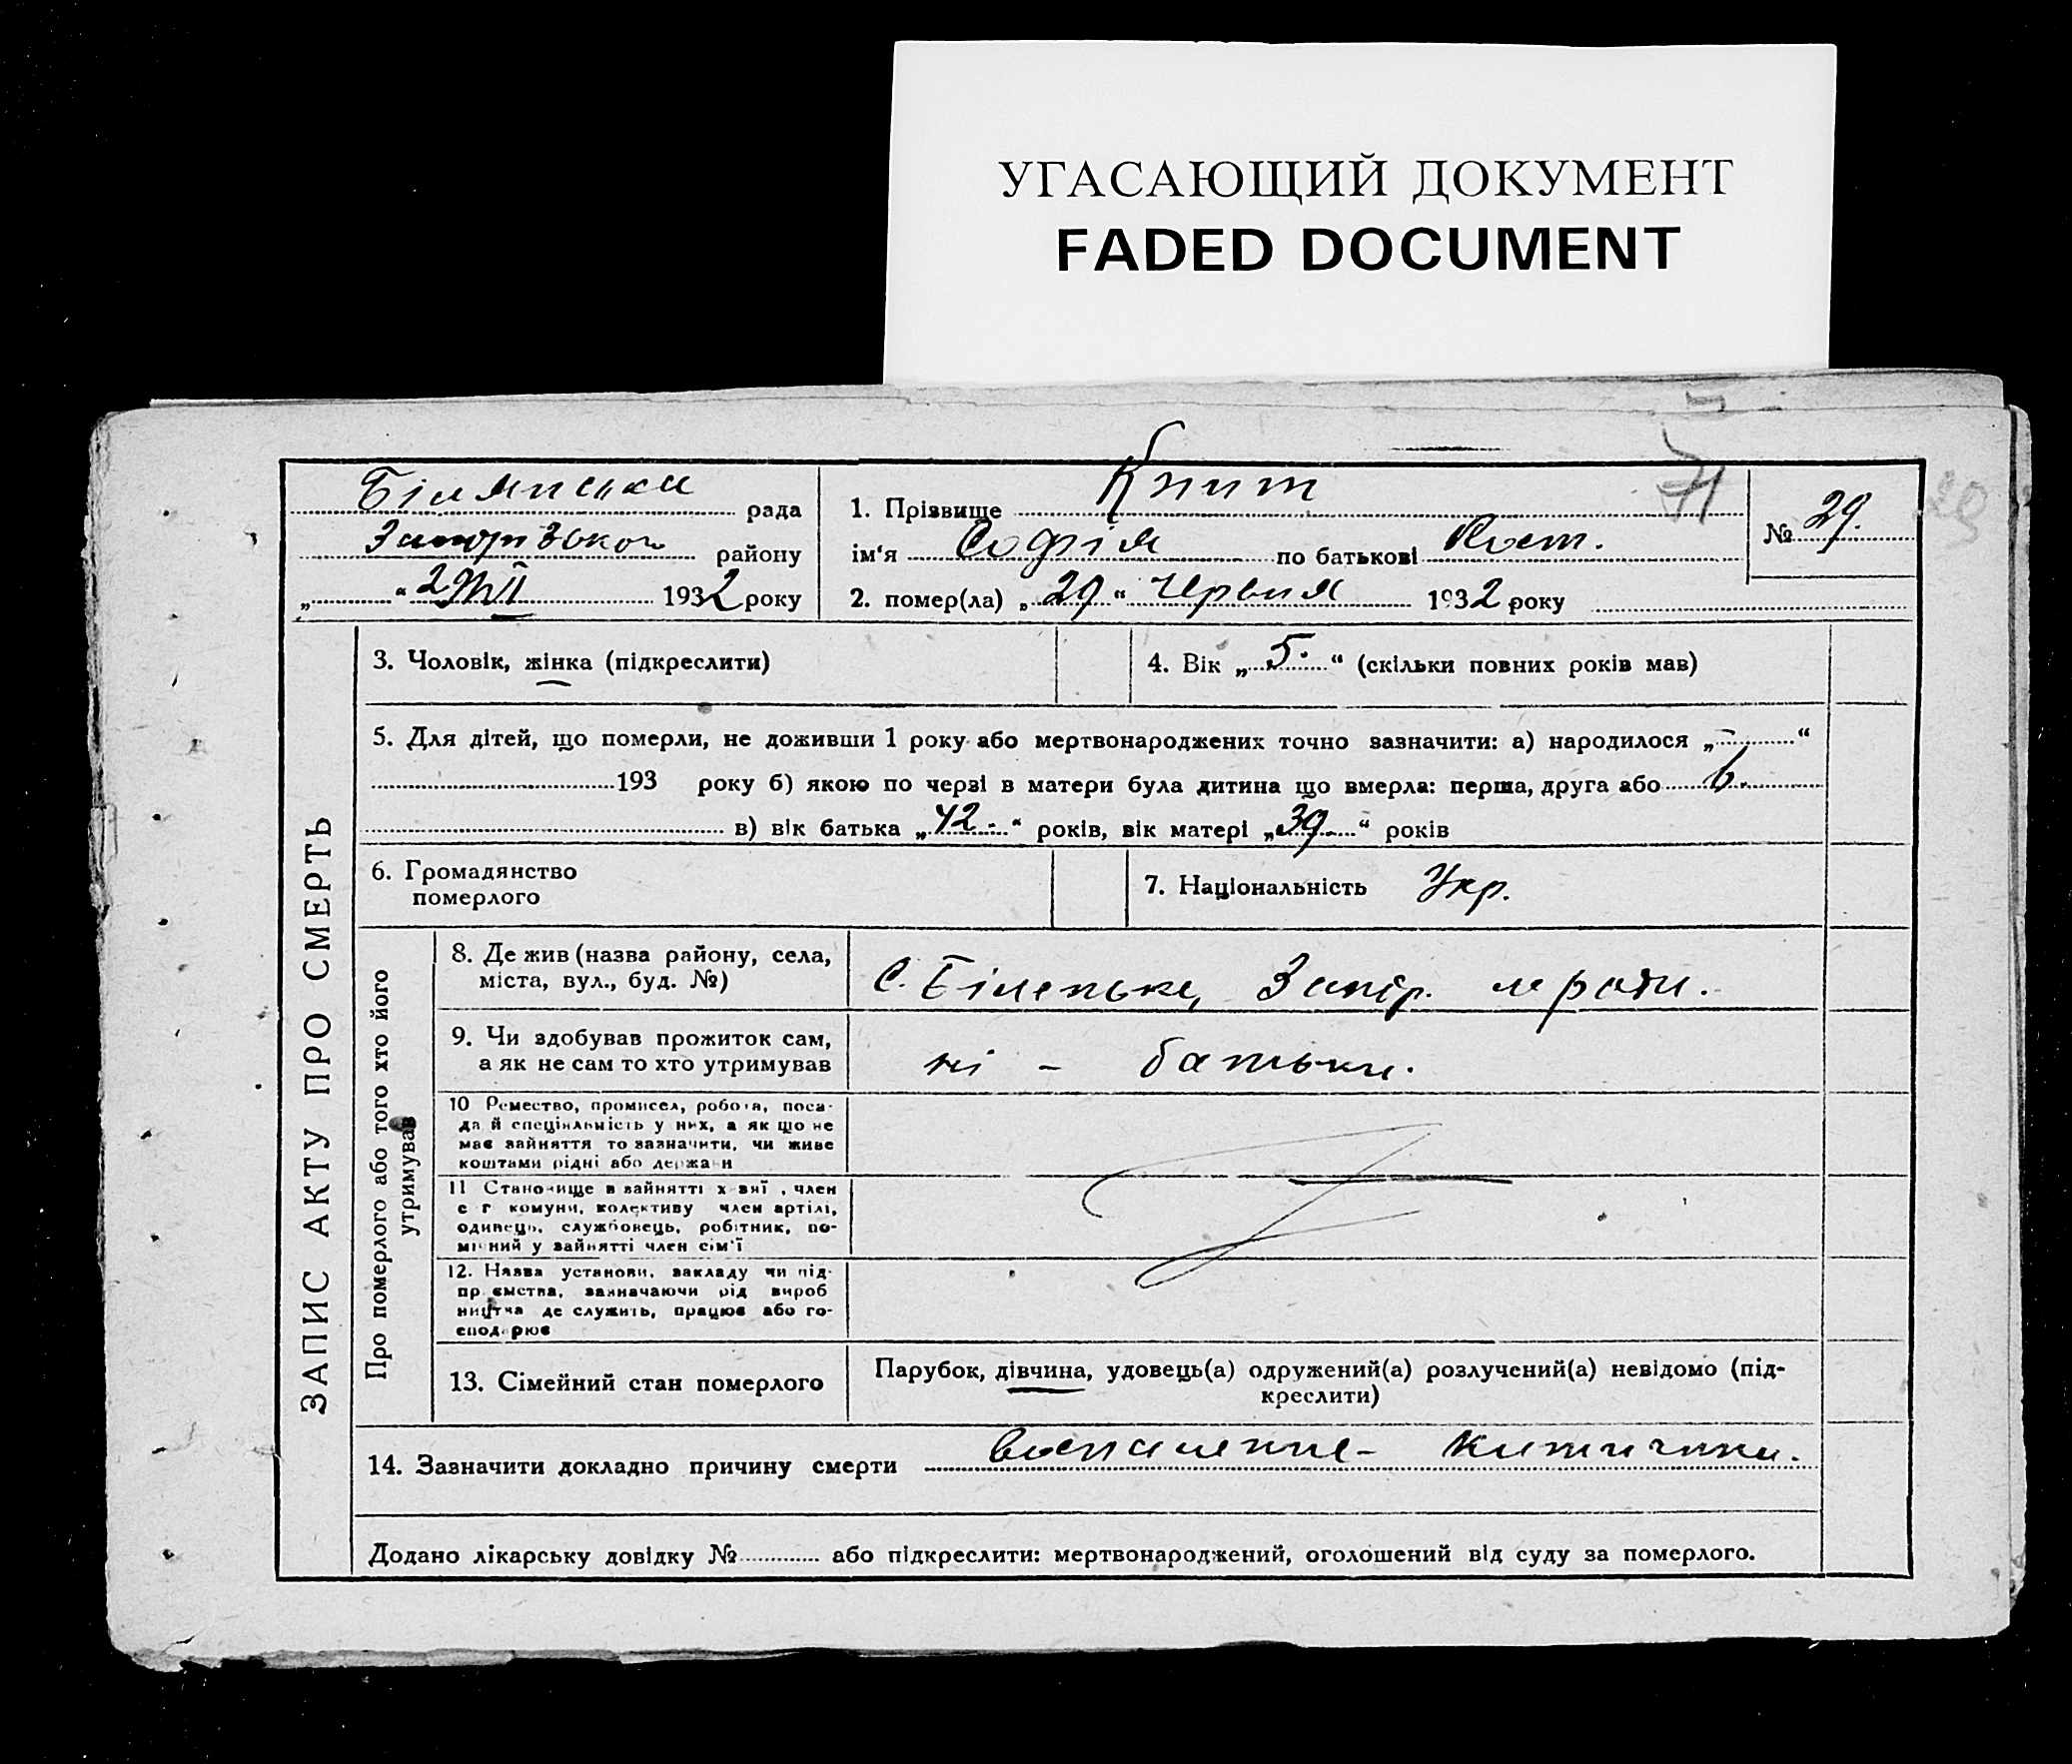 УГАСАЮЩИЙ ДОКУМЕНТ
FADED DOCUMENT
рада
району
1932 року
1. Прізвище Книш
ім'я Софія по батькові Кост.
2. помер(ла) „29“ Червня 1932 року
№ 29.
ЗАПИС АКТУ ПРО СМЕРТЬ
3. Чоловік, жінка (підкреслити)
4. Вік „5.“ (скільки повних років мав)
5. Для дітей, що померли, не доживши 1 року або мертвонароджених точно зазначити: а) народилося „-“
193 року б) якою по черзі в матери була дитина що вмерла: перша, друга або 6.
в) вік батька „42“ років, вік матері „39“ років
6. Громадянство
померлого
7. Національність Укр.
Про померлого або того хто його
утримував
8. Де жив (назва району, села,
міста, вул., буд. №)
с. Біленьке, Запор.
9. Чи здобував прожиток сам,
а як не сам то хто утримував
ні - батьки.
10 Ремество, промисел, робота, поса-
да й спеціяльність у них, а як що не
має зайняття то зазначити, чи живе
коштами рідні або держави
11 Становище в зайнятті член
с г комуни, колективу член артілі,
одинець, службовець, робітник, по-
мічний у зайнятті член сім'ї
12. Назва установи, закладу чи під-
приємства, зазначаючи рід вироб
ництва де служить, працює або го-
сподарює
13. Сімейний стан померлого
Парубок, дівчина, удовець(а) одружений(а) розлучений(а) невідомо (під-
креслити)
14. Зазначити докладно причину смерти воспаление
Додано лікарську довідку № або підкреслити: мертвонароджений, оголошений від суду за померлого.